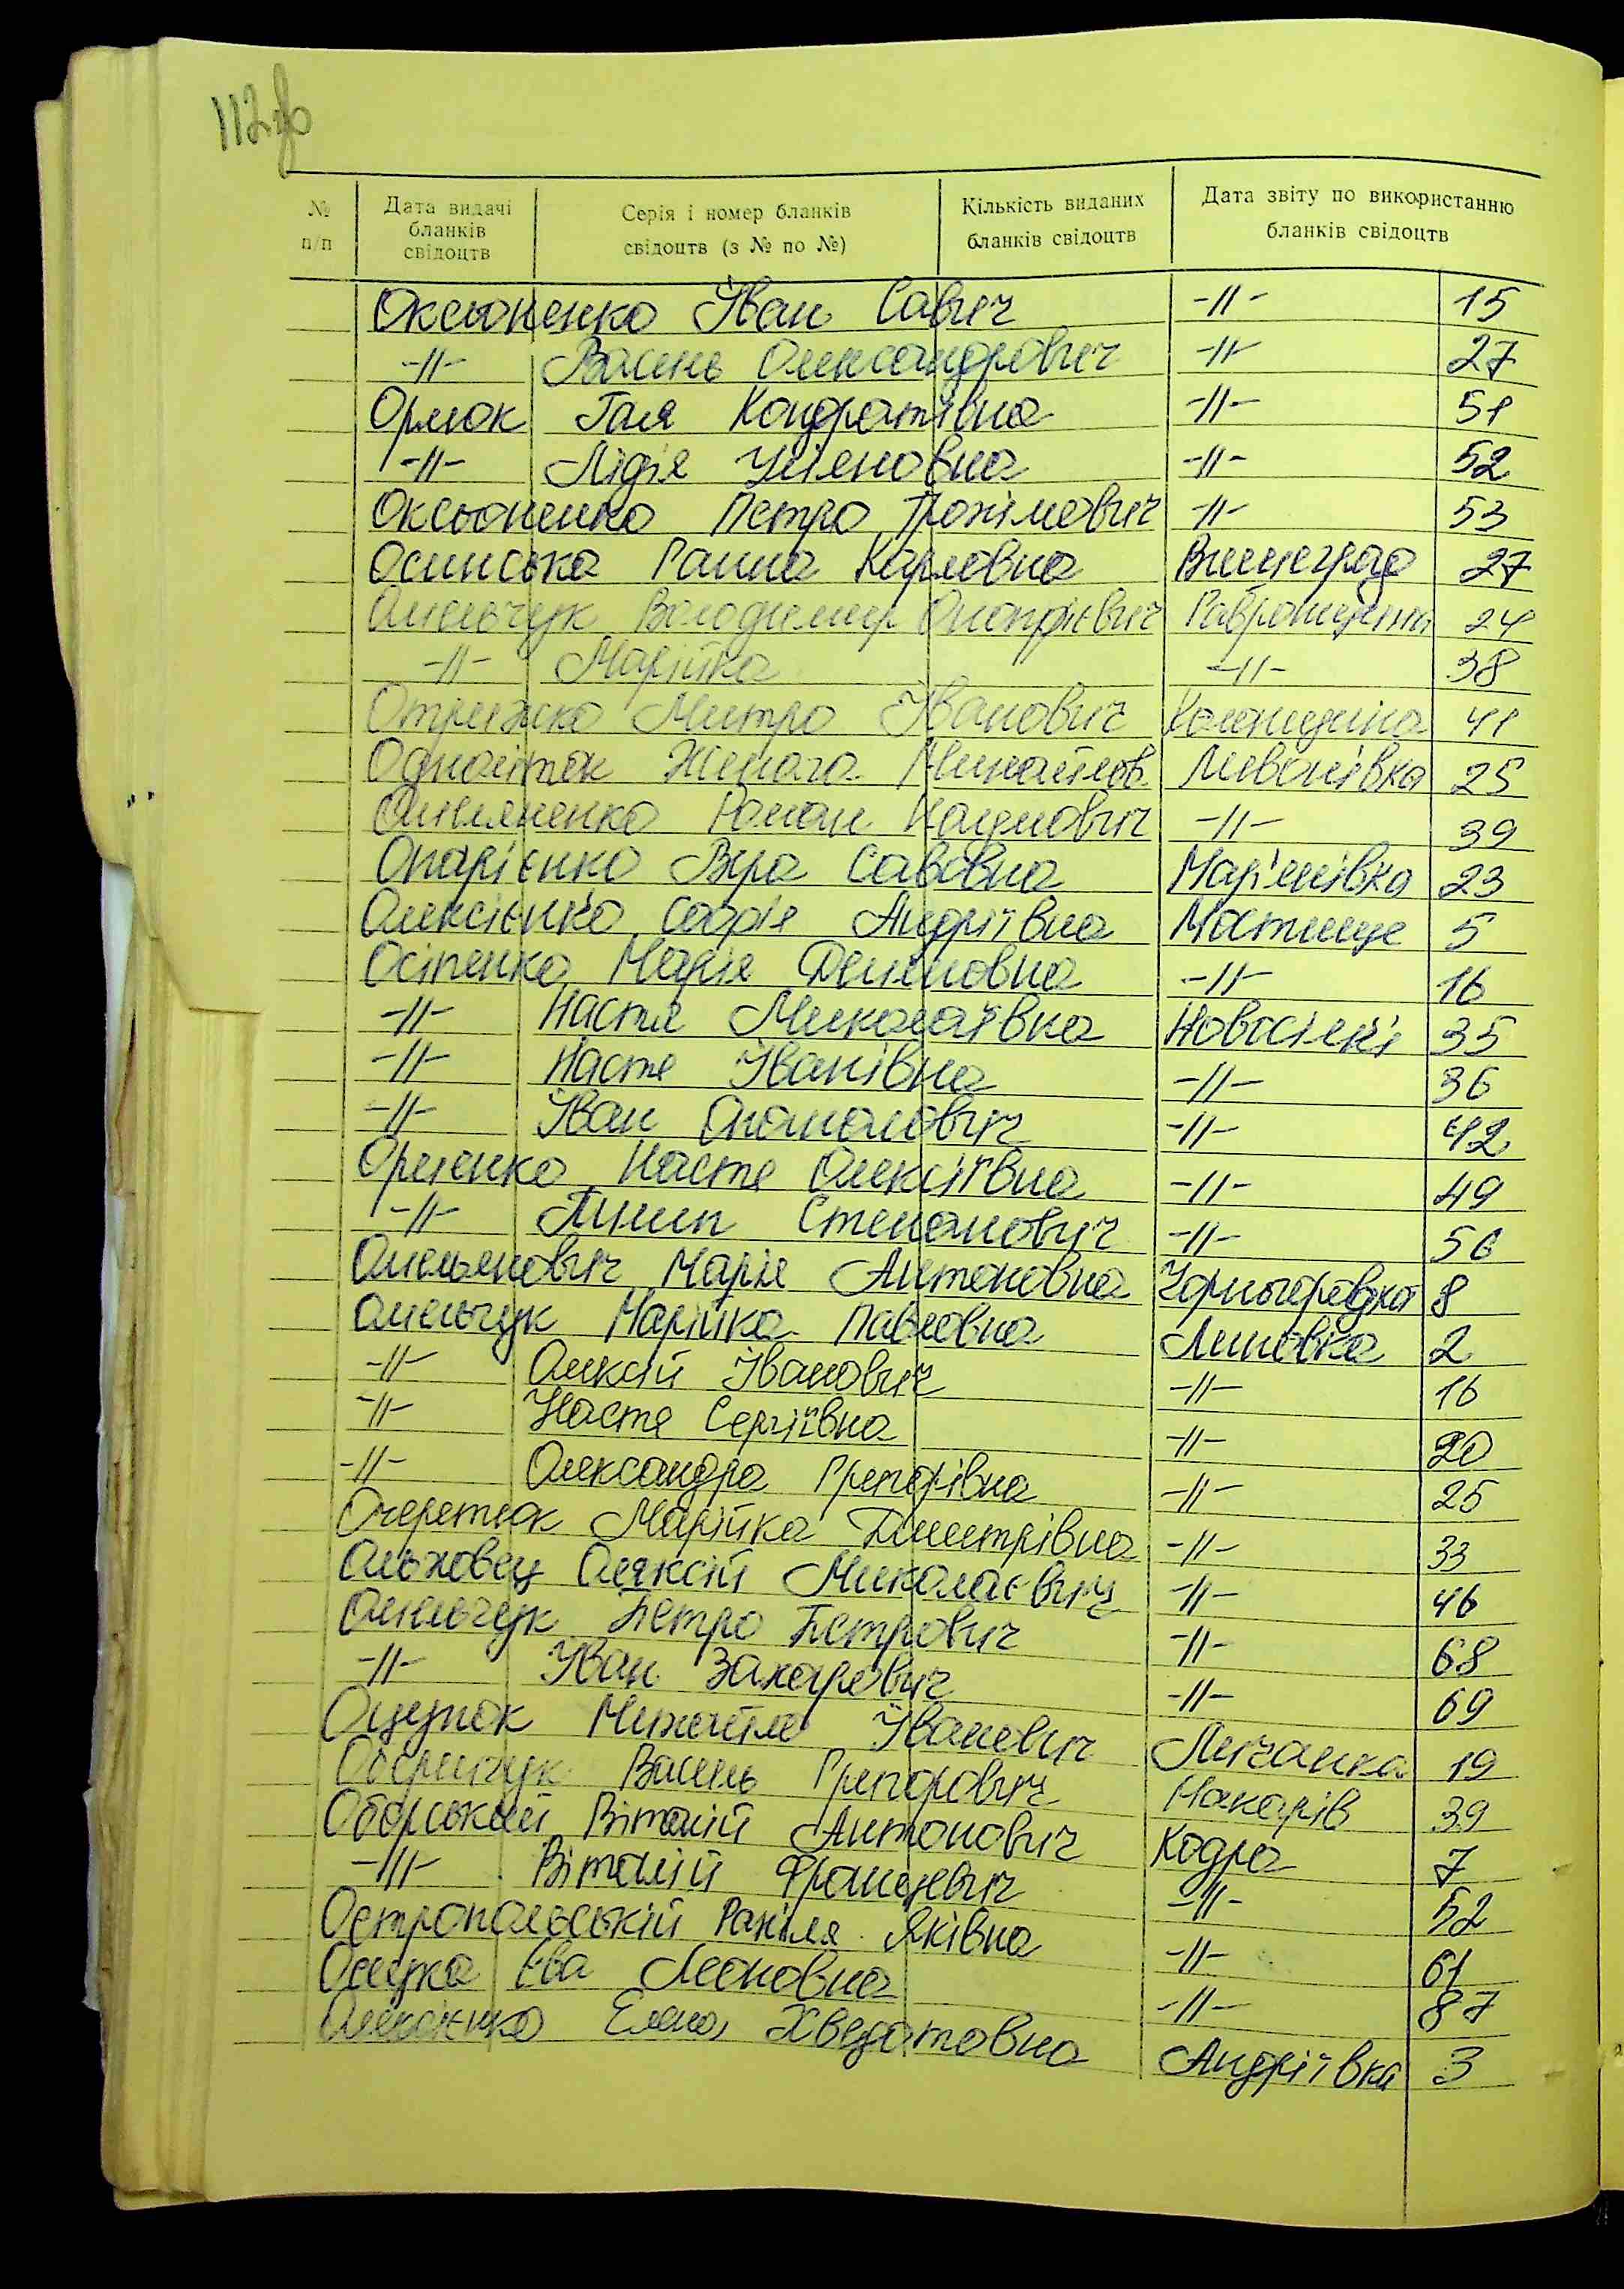 112зв
№ п/п Дата видачі бланків свідоцтв Серія і номер бланків свідоцтв (з № по №) Кількість виданих бланків свідоцтв Дата звіту по використанню бланків свідоцтв
Оксьоненко Іван Савич -//- 15
-//- Василь Олександрович -//- 27
Орлюк Галя Кондратівна -//- 51
-//- Лідія Уляновна -//- 52
Оксьоненко Петро Трохімович -//- 53
Осинська Ганна Карловна Вишеград 27
Омельчук Володимир Онопрієвич Гавронщина 24
-//- Марійка -//- 38
Отрижко Митро Іванович Колонщина 41
Одноіток Михайлов. Мивонівка 25
Омеляненко Роман Наумович -//- 39
Опарієнко Віра Савовна Мар'янівка 23
Олексієнко Софія Андріївна Мостище 5
Осіпенко Марія Демяновна -//- 16
-//- Настя Миколаївна Новосілкі 35
-//- Настя Іванівна -//- 36
-//- Іван Опанасович -//- 42
Орленко Настя Олексіївна -//- 49
-//- Пилип Степанович -//- 56
Омельянович Марія Антоновна Чорногородка 8
Омельчук Марійка Павловна Липовка 2
-//- Олексій Іванович -//- 16
-//- Настя Сергіївна -//- 20
-//- Олександра Григорівна -//- 25
Очеретюк Марійка Дмитрівна -//- 33
Ольховец Олексій Миколаєвич -//- 46
Омельчук Петро Петрович -//- 68
-//- Іван Захарович -//- 69
Оцупок Михайло Іванович Личанка 19
Василь Григорович Макарів 39
Оборський Віталій Антонович Кодра 7
-//- Віталій Францевич -//- 52
Остропольській Рахіля Яківна -//- 61
Осецка Ева Леоновна -//- 87
Олексієнко Елена Хведотовна Андріївка 3